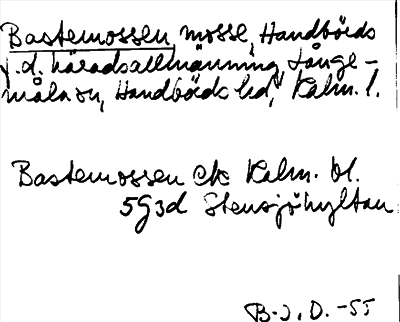 Bastemossen, mosse, Handbörds
f.d. häradsallmänning, Långe-
måla sn, Handbörds hd, Kalm. l.
Bastemossen ek Kalm. bl.
5G3d Stensjöhyltan
B-J. D. -55